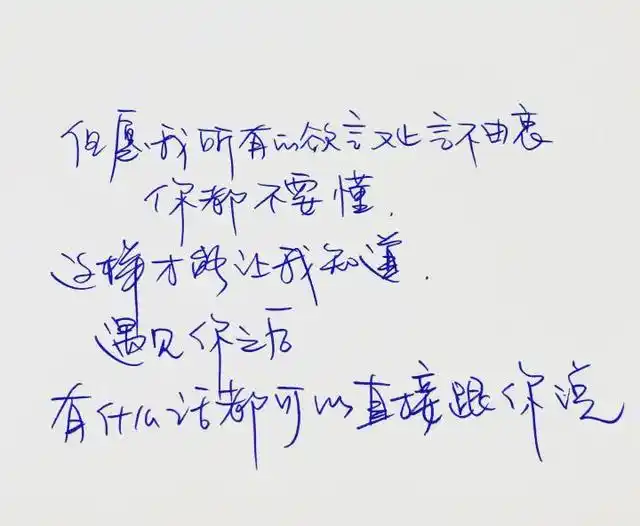 但愿我所有的欲言又止言不由衷
你都不要懂.
这样才能让我知道.
遇见你之后
有什么话都可以直接跟你说